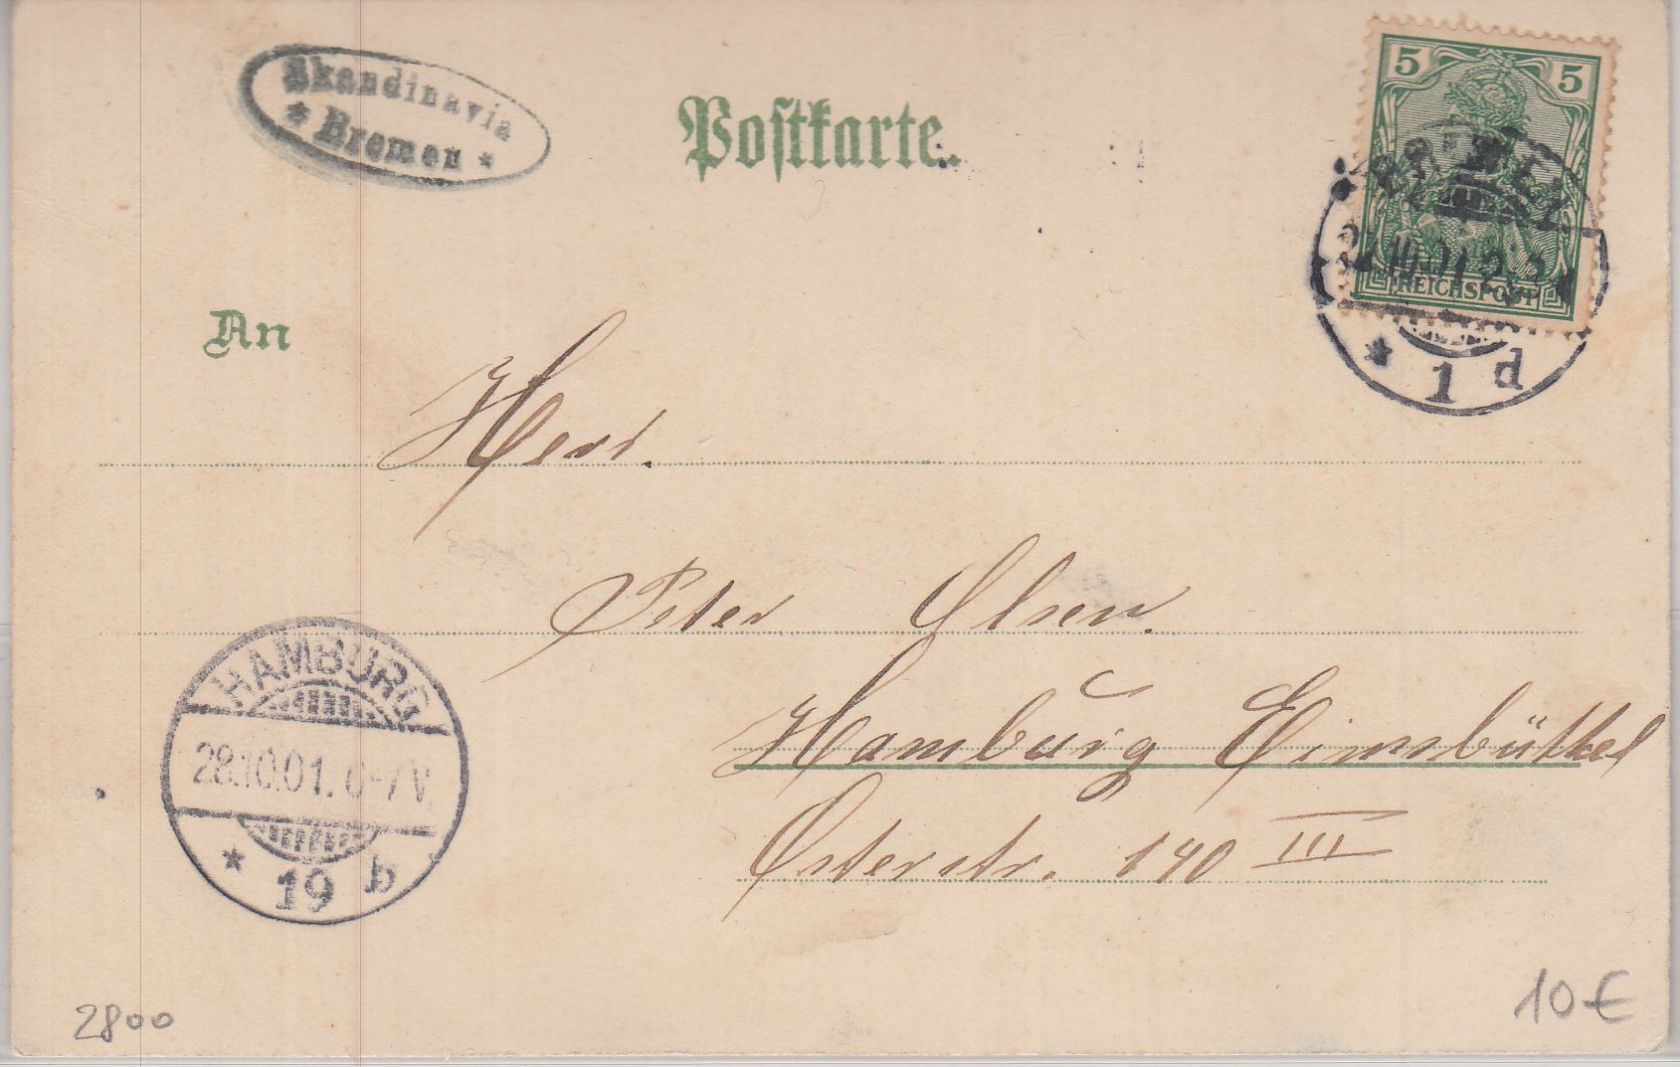 Skandinavia
* Bremen *
Postkarte.
5 5
REICHSPOST
* 1 d
An
Herr.
Peter Olsen.
Hamburg Eimsbüttel
Osterstr. 140 III
HAMBURG
28.10.01. 6-7V.
* 19 b
2800
10€